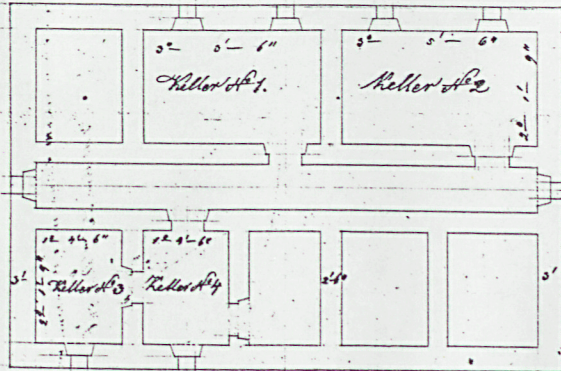 3° 5' — 6"
Keller No 1.
3° 5' — 6"
Keller No 2
2° 1' 9"
1° 4' 6"
Keller No 3
2° 1' 9"
1° 4' 6"
Keller No 4
3'
2' 6"
3'